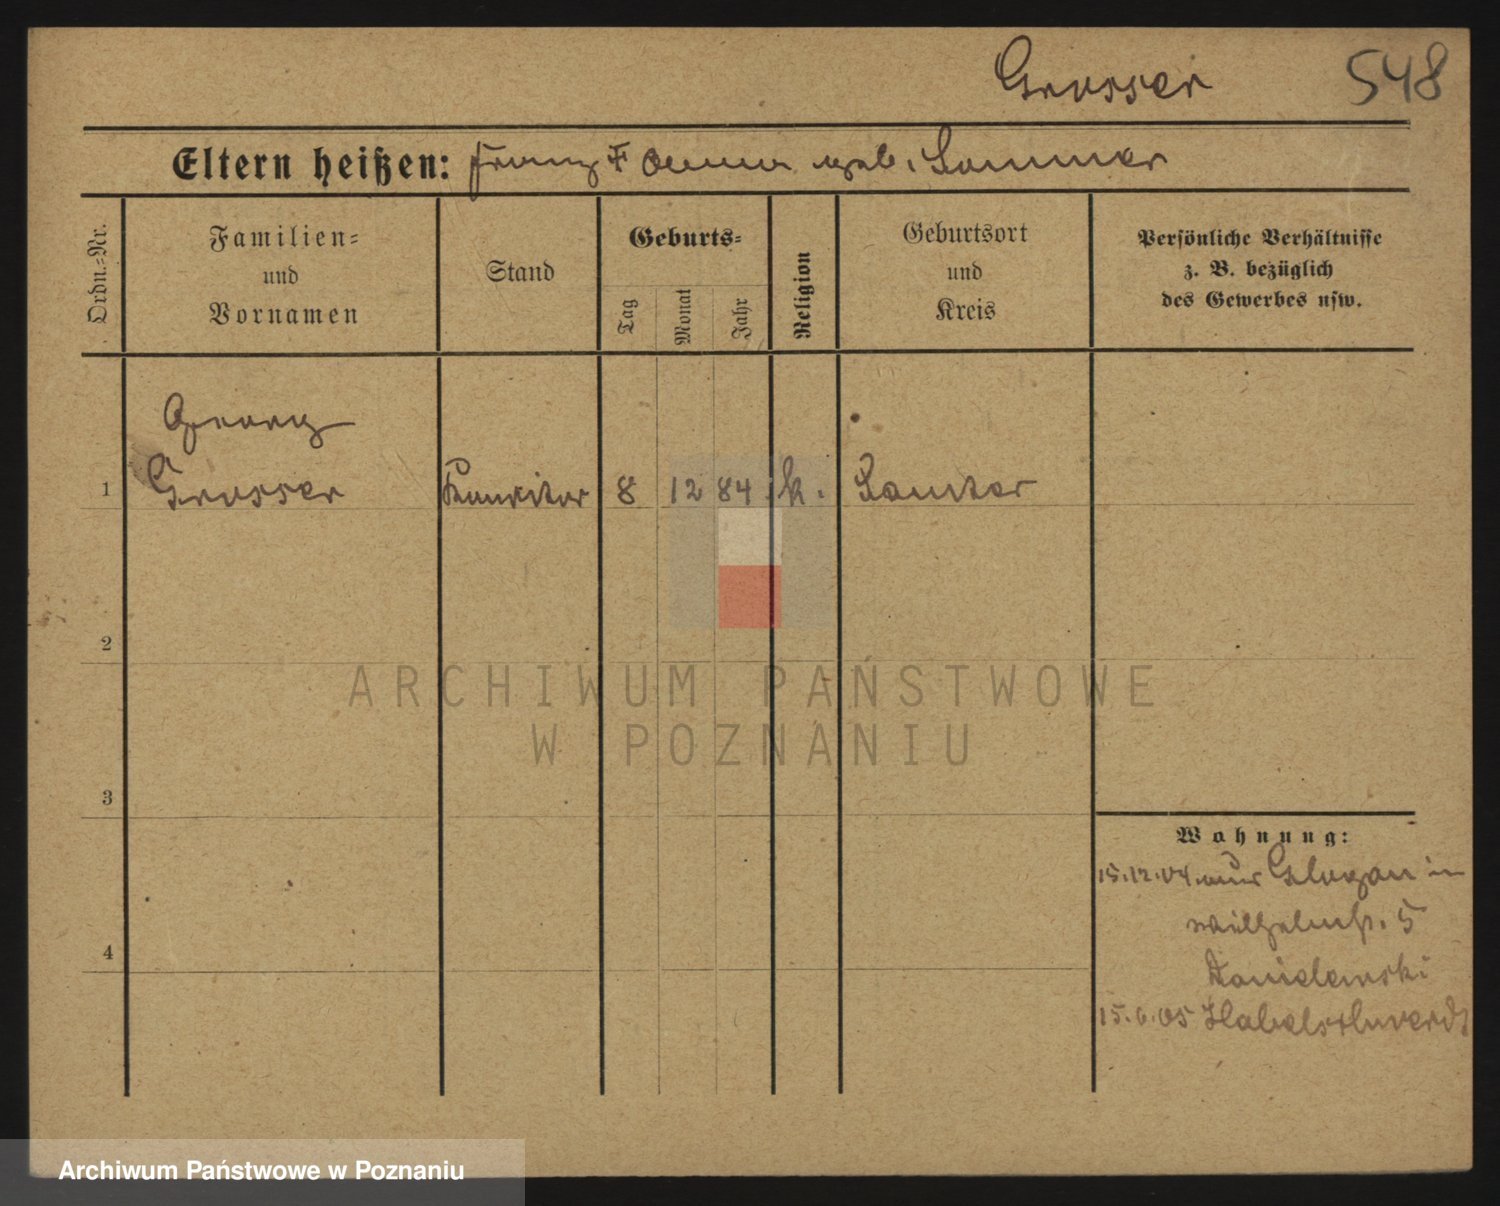 Grosser 548
Eltern heißen: Franz + Anna geb. Sommer
Ordn.-Nr.
Familien-
und
Vornamen
Stand
Geburts-
Tag
Monat
Jahr
Religion
Geburtsort
und
Kreis
Persönliche Verhältnisse
z. B. bezüglich
des Gewerbes usw.
Georg
1 Grosser 8 12 84 k. Samter
2
3
4
Wohnung:
15.12.04 aus Glogau in
Wilhelmstr. 5
15. 05 Habelschwerdt
ARCHIWUM PAŃSTWOWE
W POZNANIU
Archiwum Państwowe w Poznaniu